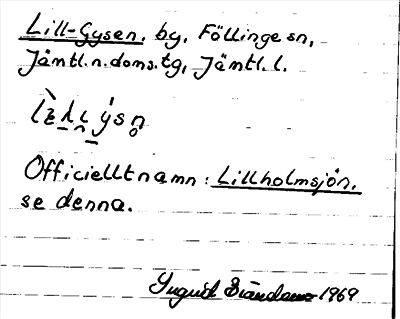 Lill-Gysen, by, Föllinge sn,
Jämtl.n.doms.tg, Jämtl.l.
Officiellt namn: Lillholmsjön,
se denna.
Ingrid 1969